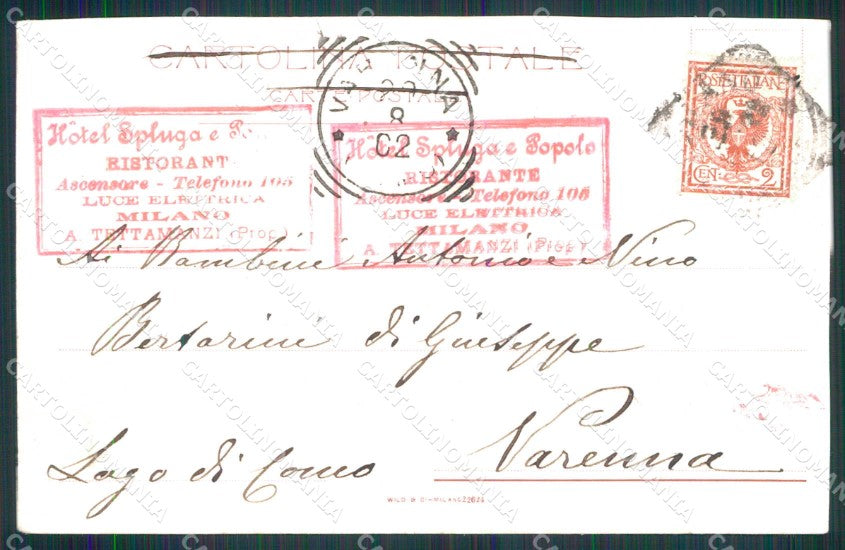 CARTOLINA POSTALE
CARTE POSTALE
POSTE ITALIANE
CEN. 2
VARENNA
8
02
Hôtel Spluga e
RISTORANT
Ascensore - Telefono 105
LUCE ELETTRICA
MILANO
A TETTAMANZI (Prop.)
Hôtel Spluga e Popolo
RISTORANTE
Ascensore - Telefono 105
LUCE ELETTRICA
MILANO
A TETTAMANZI (Prop.)
Ai Bambini Antonio e Nino
Bertarini di Giuseppe
Varenna
Lago di Como
CARTOLINOMANIA